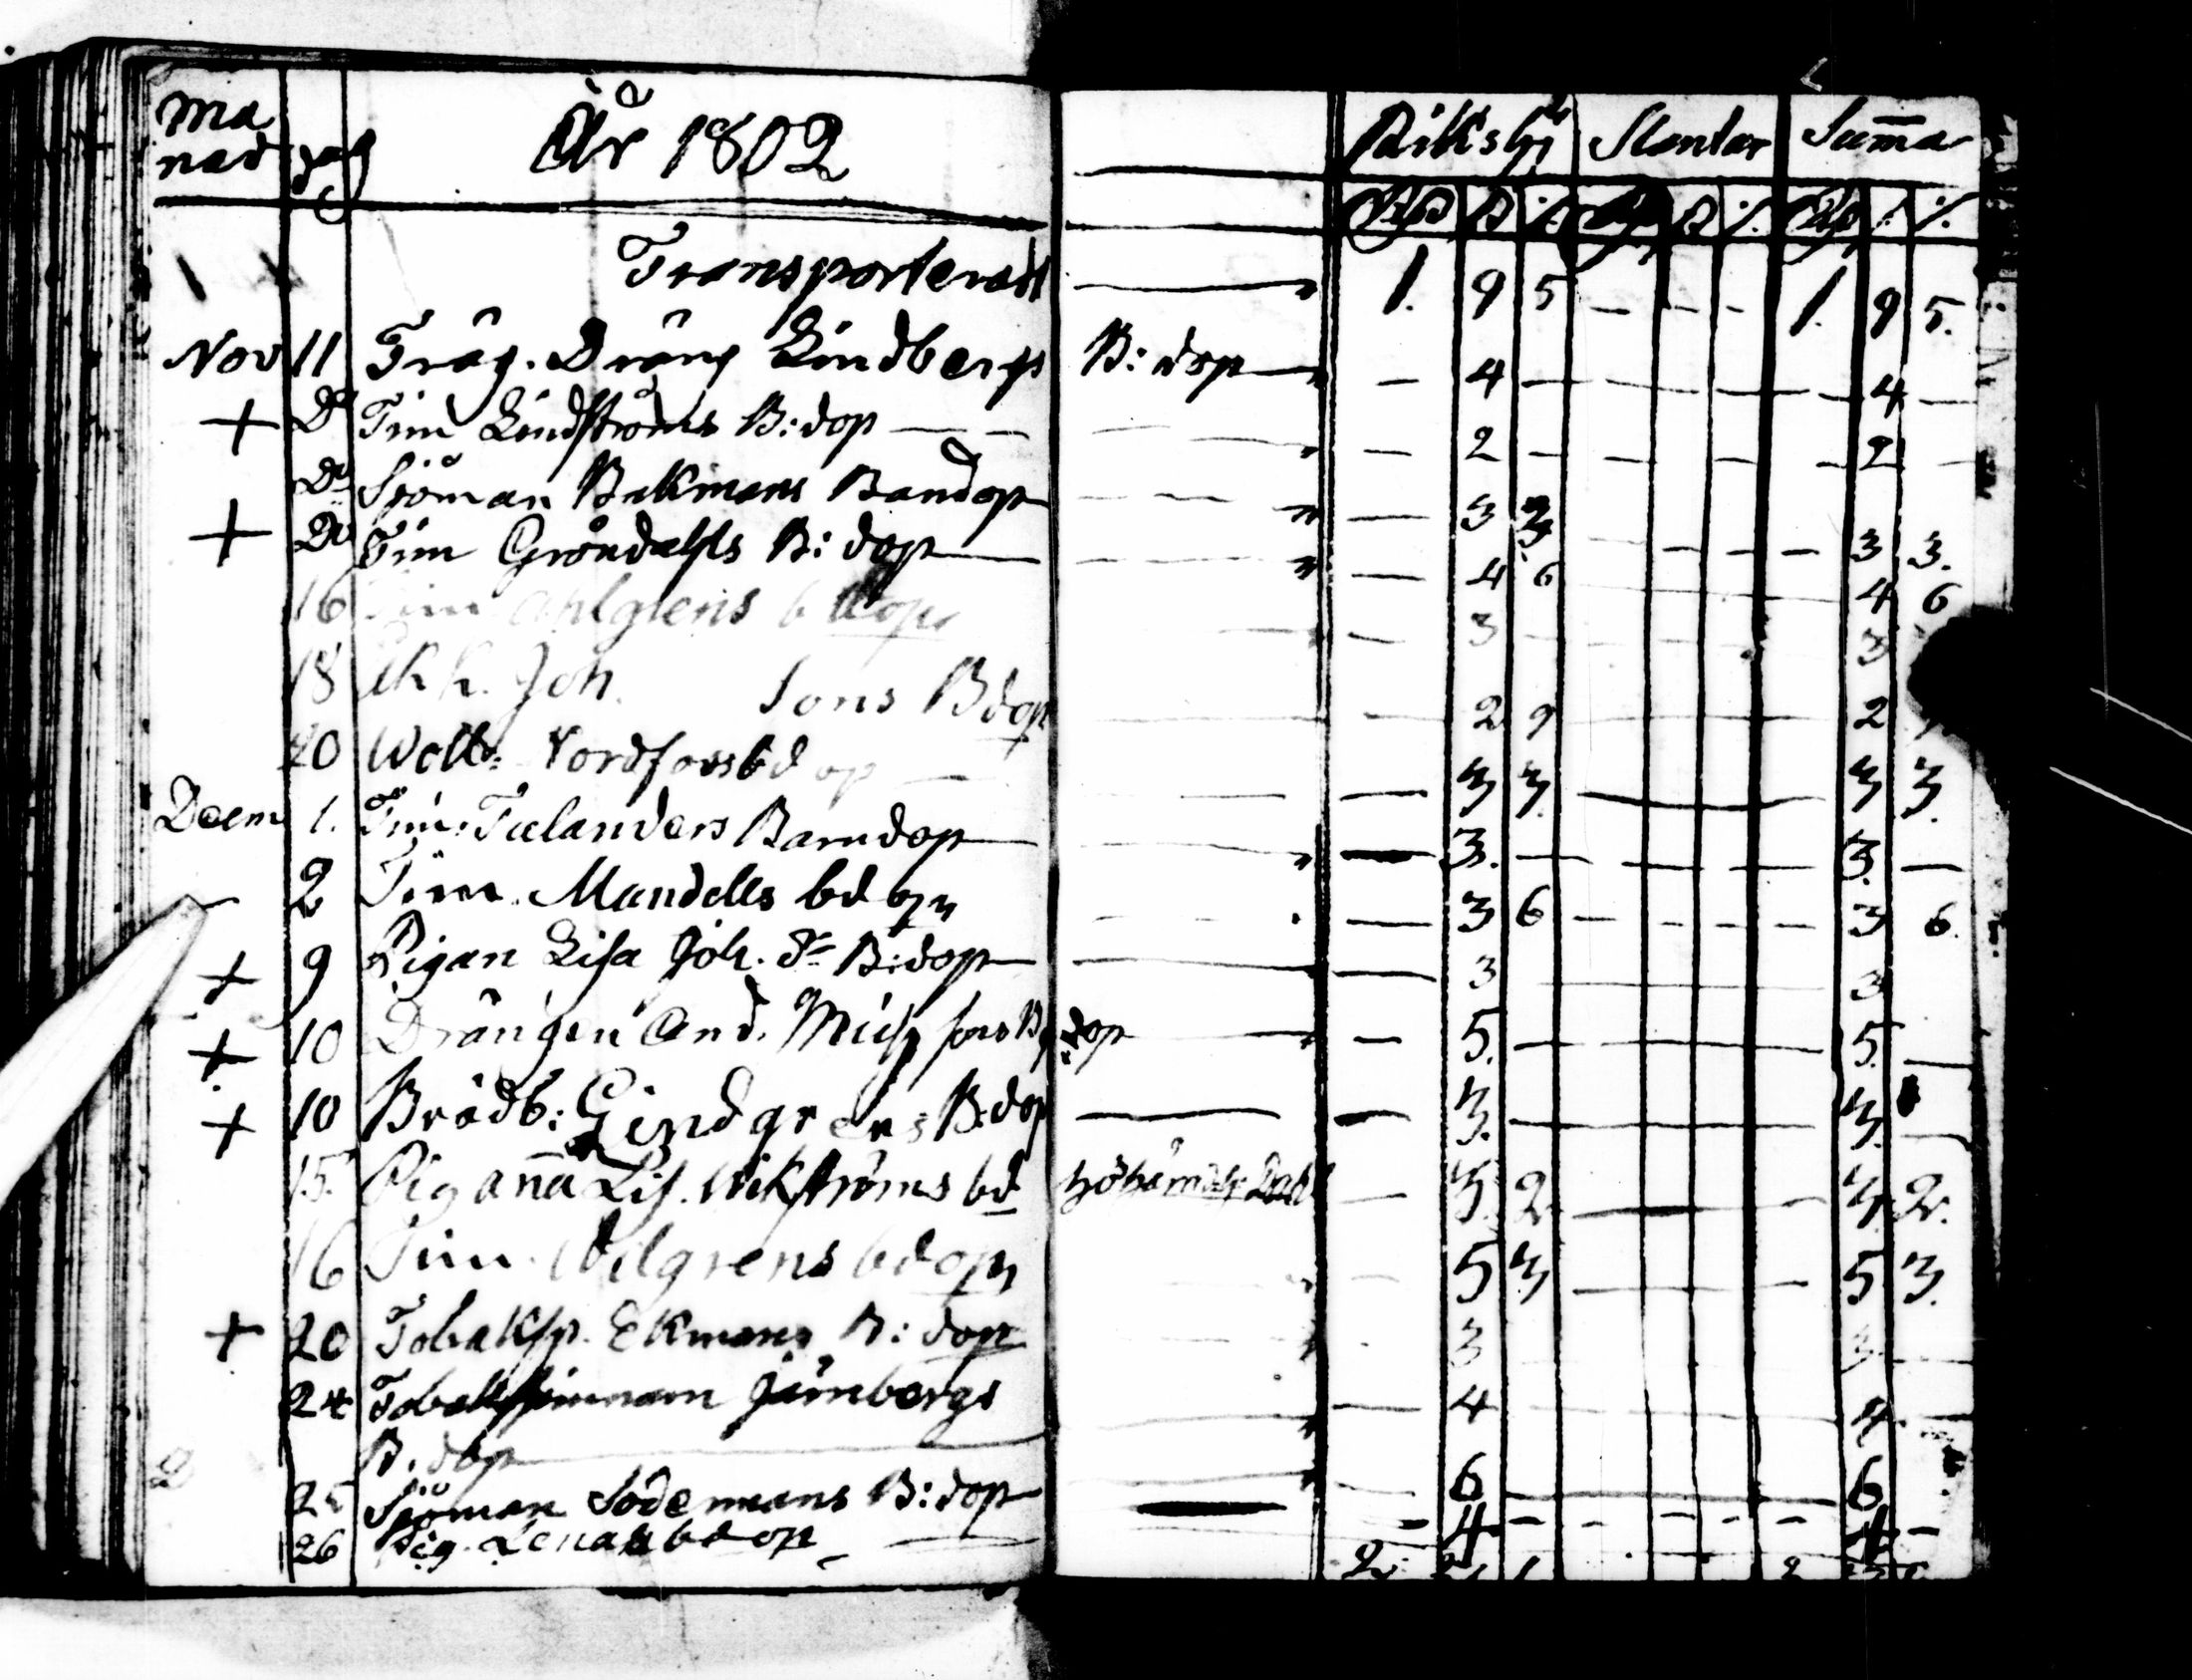 Ma
nad dag År 1802 Riksg Slantar Suma
Transporterad 1. 9 5 — — — 1. 9 5.
Nov 11 Träg. Dräng Lindbergs B: dop — 4 — — — — 4 —
+ Do Tim Lindströms B: dop — 2 — — — — 2 —
Do Sjöman Bekmans Barndop — 3 3 — — — 3 3.
+ Do Tim Gröndahls B: dop — 4 6 4 6
16 Tim Ahlgrens b dop — 3 — 3
18 Joh. Sons B dop — 2 9 2
20 Nordfors bd op — 3 3. — 3 3.
Decem 1. Tim: Tulanders Barndop — 3. — — — — 3. —
2 Tim. Mandells bd op — 3 6 — — — — 3 6.
+ 9 Pigan Lisa Joh. dr B: dop — 3 3
+ 10 Drängen And. Mich sons B dop — 5. — — — — 5. —
+ 10 Brädb: Lindgrens B: dop — 3. — 3. —
15. Pig Anna Lis. Wikströms bd — 3. 2 — 3. 2.
16 Tim. Wilgrens bd op — 5 3 — 5 3.
+ 20 Tobaksp. Ekmans B: dop 3 3
24 Tobaksspinnarn Jernbergs — 4 4 —
B. dop
25 Sjöman Södermans B: dop — 6 — 6
26 Pig. Lenas bd op — 4 — — — — 4 —